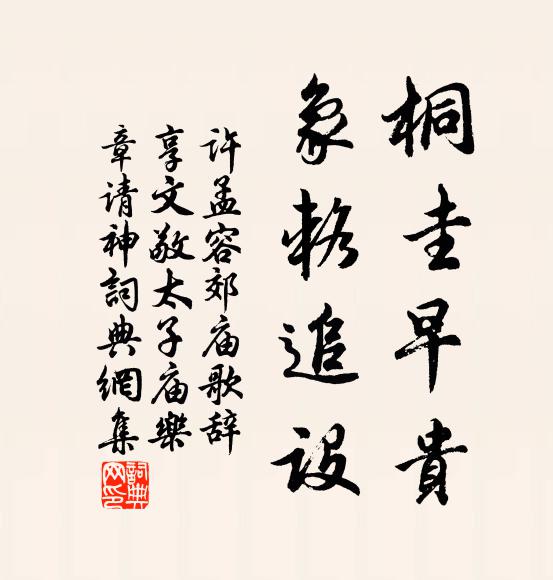 桐圭早貴
象輅追設
许孟容郊庙歌辞
享文敬太子庙樂
章请神詞典網集
詞典网印